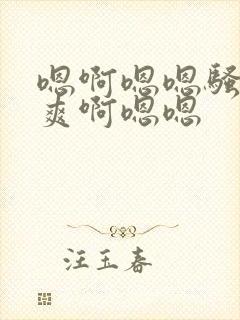 嗯啊嗯嗯骚
爽啊嗯嗯
汪玉春